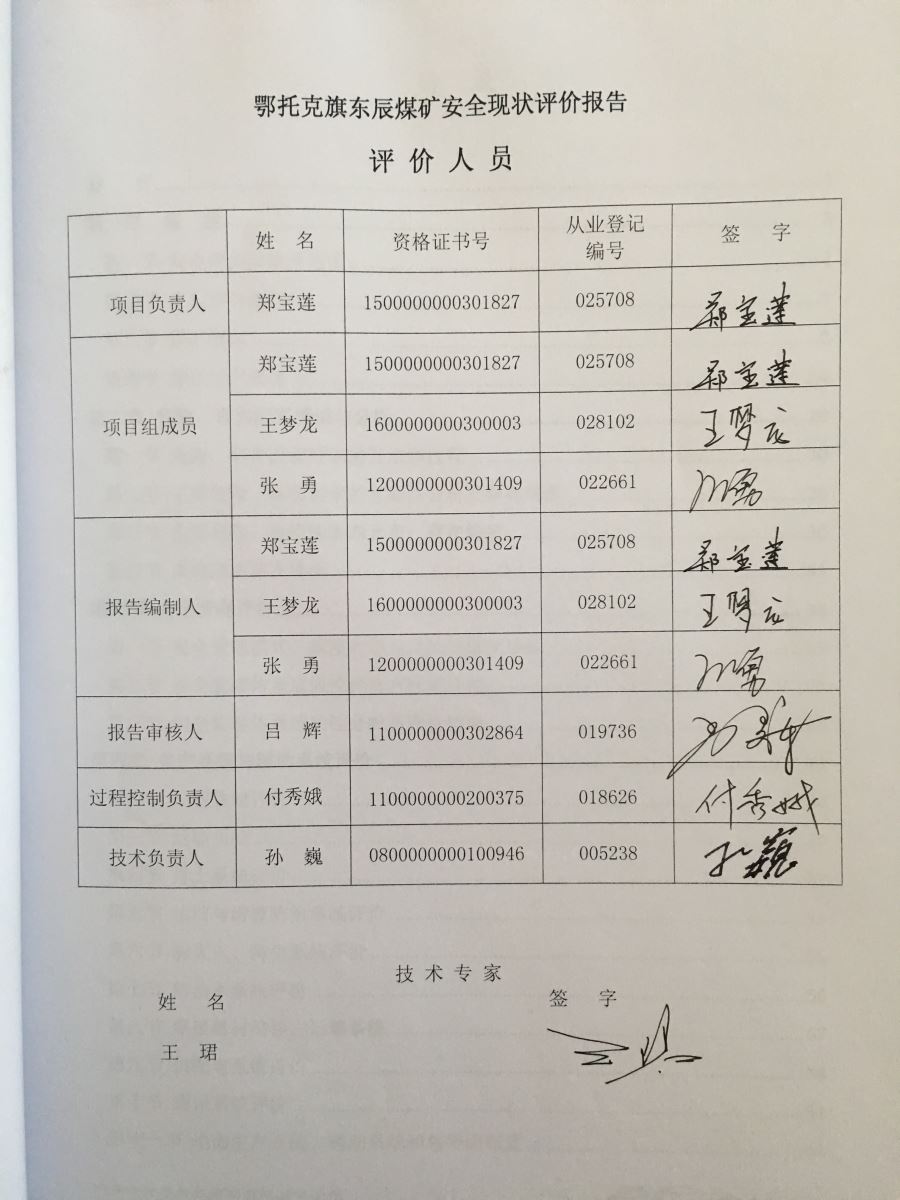 鄂托克旗东辰煤矿安全现状评价报告
评价人员
姓 名 资格证书号 从业登记编号 签 字
项目负责人 郑宝莲 1500000000301827 025708 郑宝莲
项目组成员 郑宝莲 1500000000301827 025708 郑宝莲
王梦龙 1600000000300003 028102 王梦龙
张 勇 1200000000301409 022661 张勇
报告编制人 郑宝莲 1500000000301827 025708 郑宝莲
王梦龙 1600000000300003 028102 王梦龙
张 勇 1200000000301409 022661 张勇
报告审核人 吕 辉 1100000000302864 019736
过程控制负责人 付秀娥 1100000000200375 018626 付秀娥
技术负责人 孙 巍 0800000000100946 005238 孙巍
技术专家
姓 名 签 字
王 珺